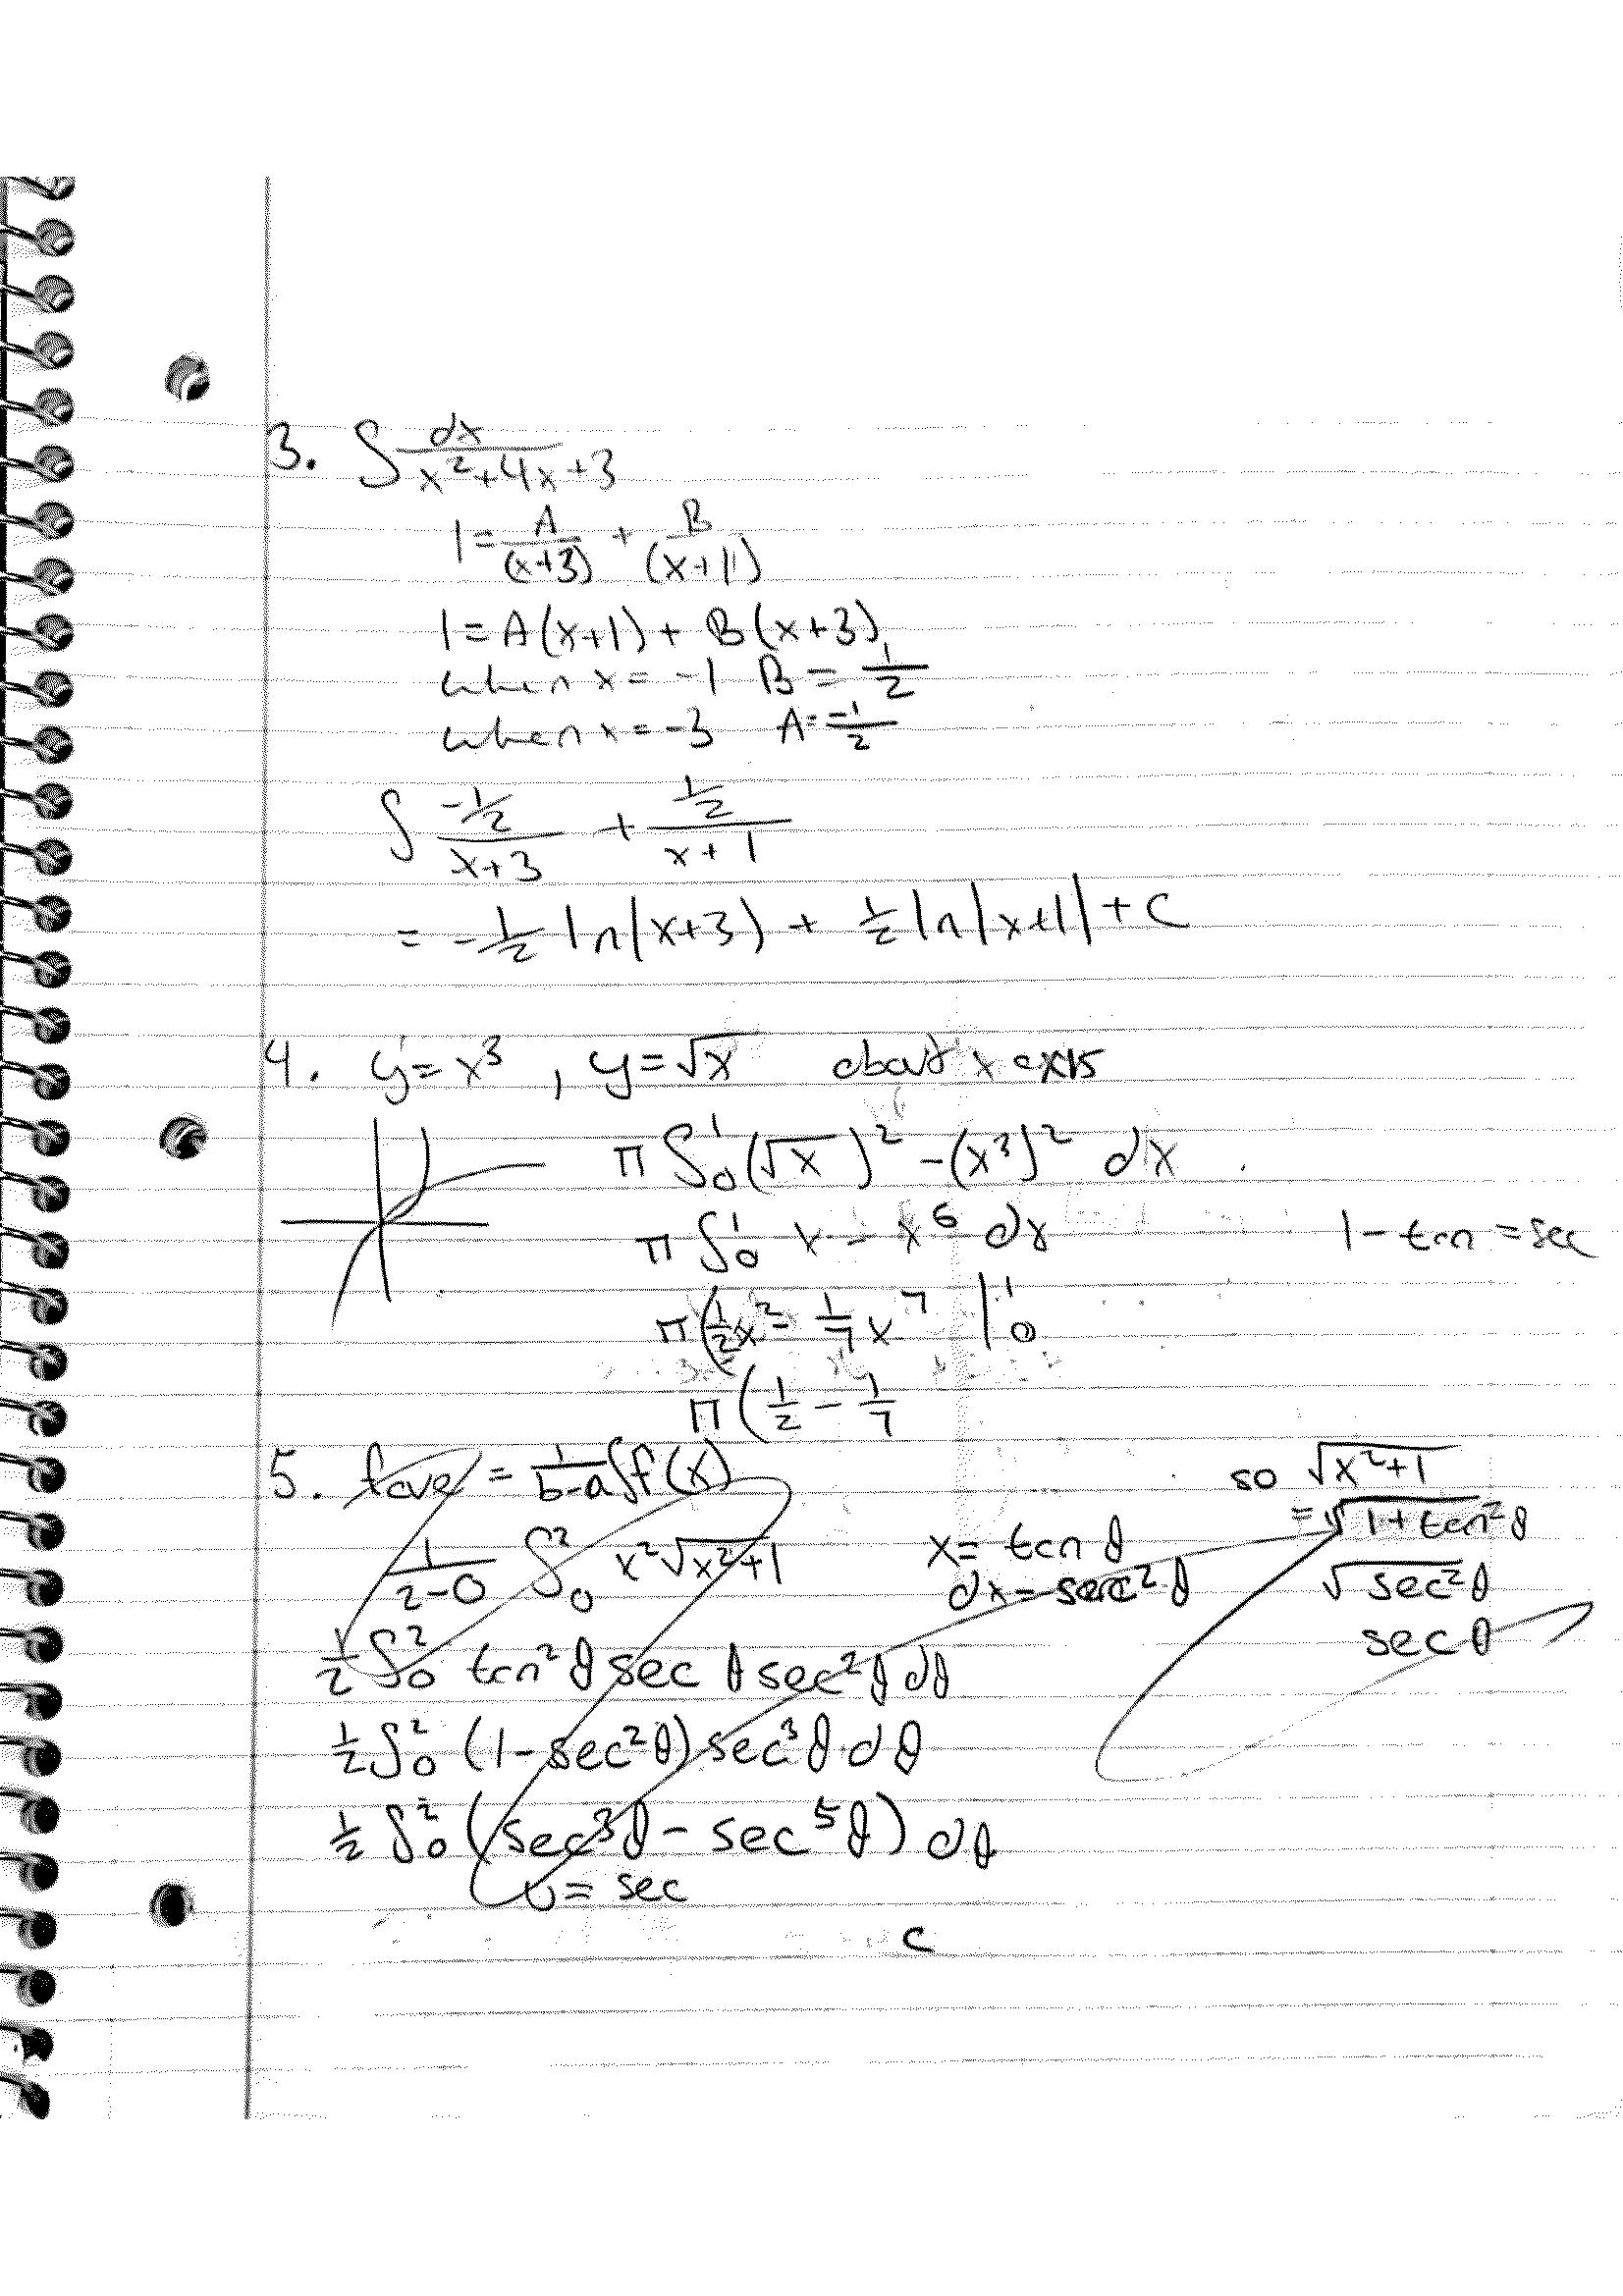 3. ∫ dx / x²+4x+3
1 = A/(x+3) + B/(x+1)
1 = A(x+1) + B(x+3)
when x = -1 B = 1/2
when x = -3 A = -1/2
∫ -1/2 / x+3 + 1/2 / x+1
= -1/2 ln|x+3) + 1/2 ln|x+1| + C
4. y = x³ , y = √x about x axis
π ∫₀¹ (√x)² - (x³)² dx
π ∫₀¹ x - x⁶ dx
1 - tan = sec
π (1/2 x² - 1/7 x⁷ |₀¹
π (1/2 - 1/7
5. fave = 1/b-a ∫f(x)
so √x²+1
= √1+tan²θ
1/2-0 ∫₀² x²√x²+1
x = tan θ
dx = sec²θ
√sec²θ
sec θ
1/2 ∫₀² tan²θ sec θ sec²θ dθ
1/2 ∫₀² (1-sec²θ) sec³θ dθ
1/2 ∫₀² (sec³θ - sec⁵θ) dθ
u = sec
c